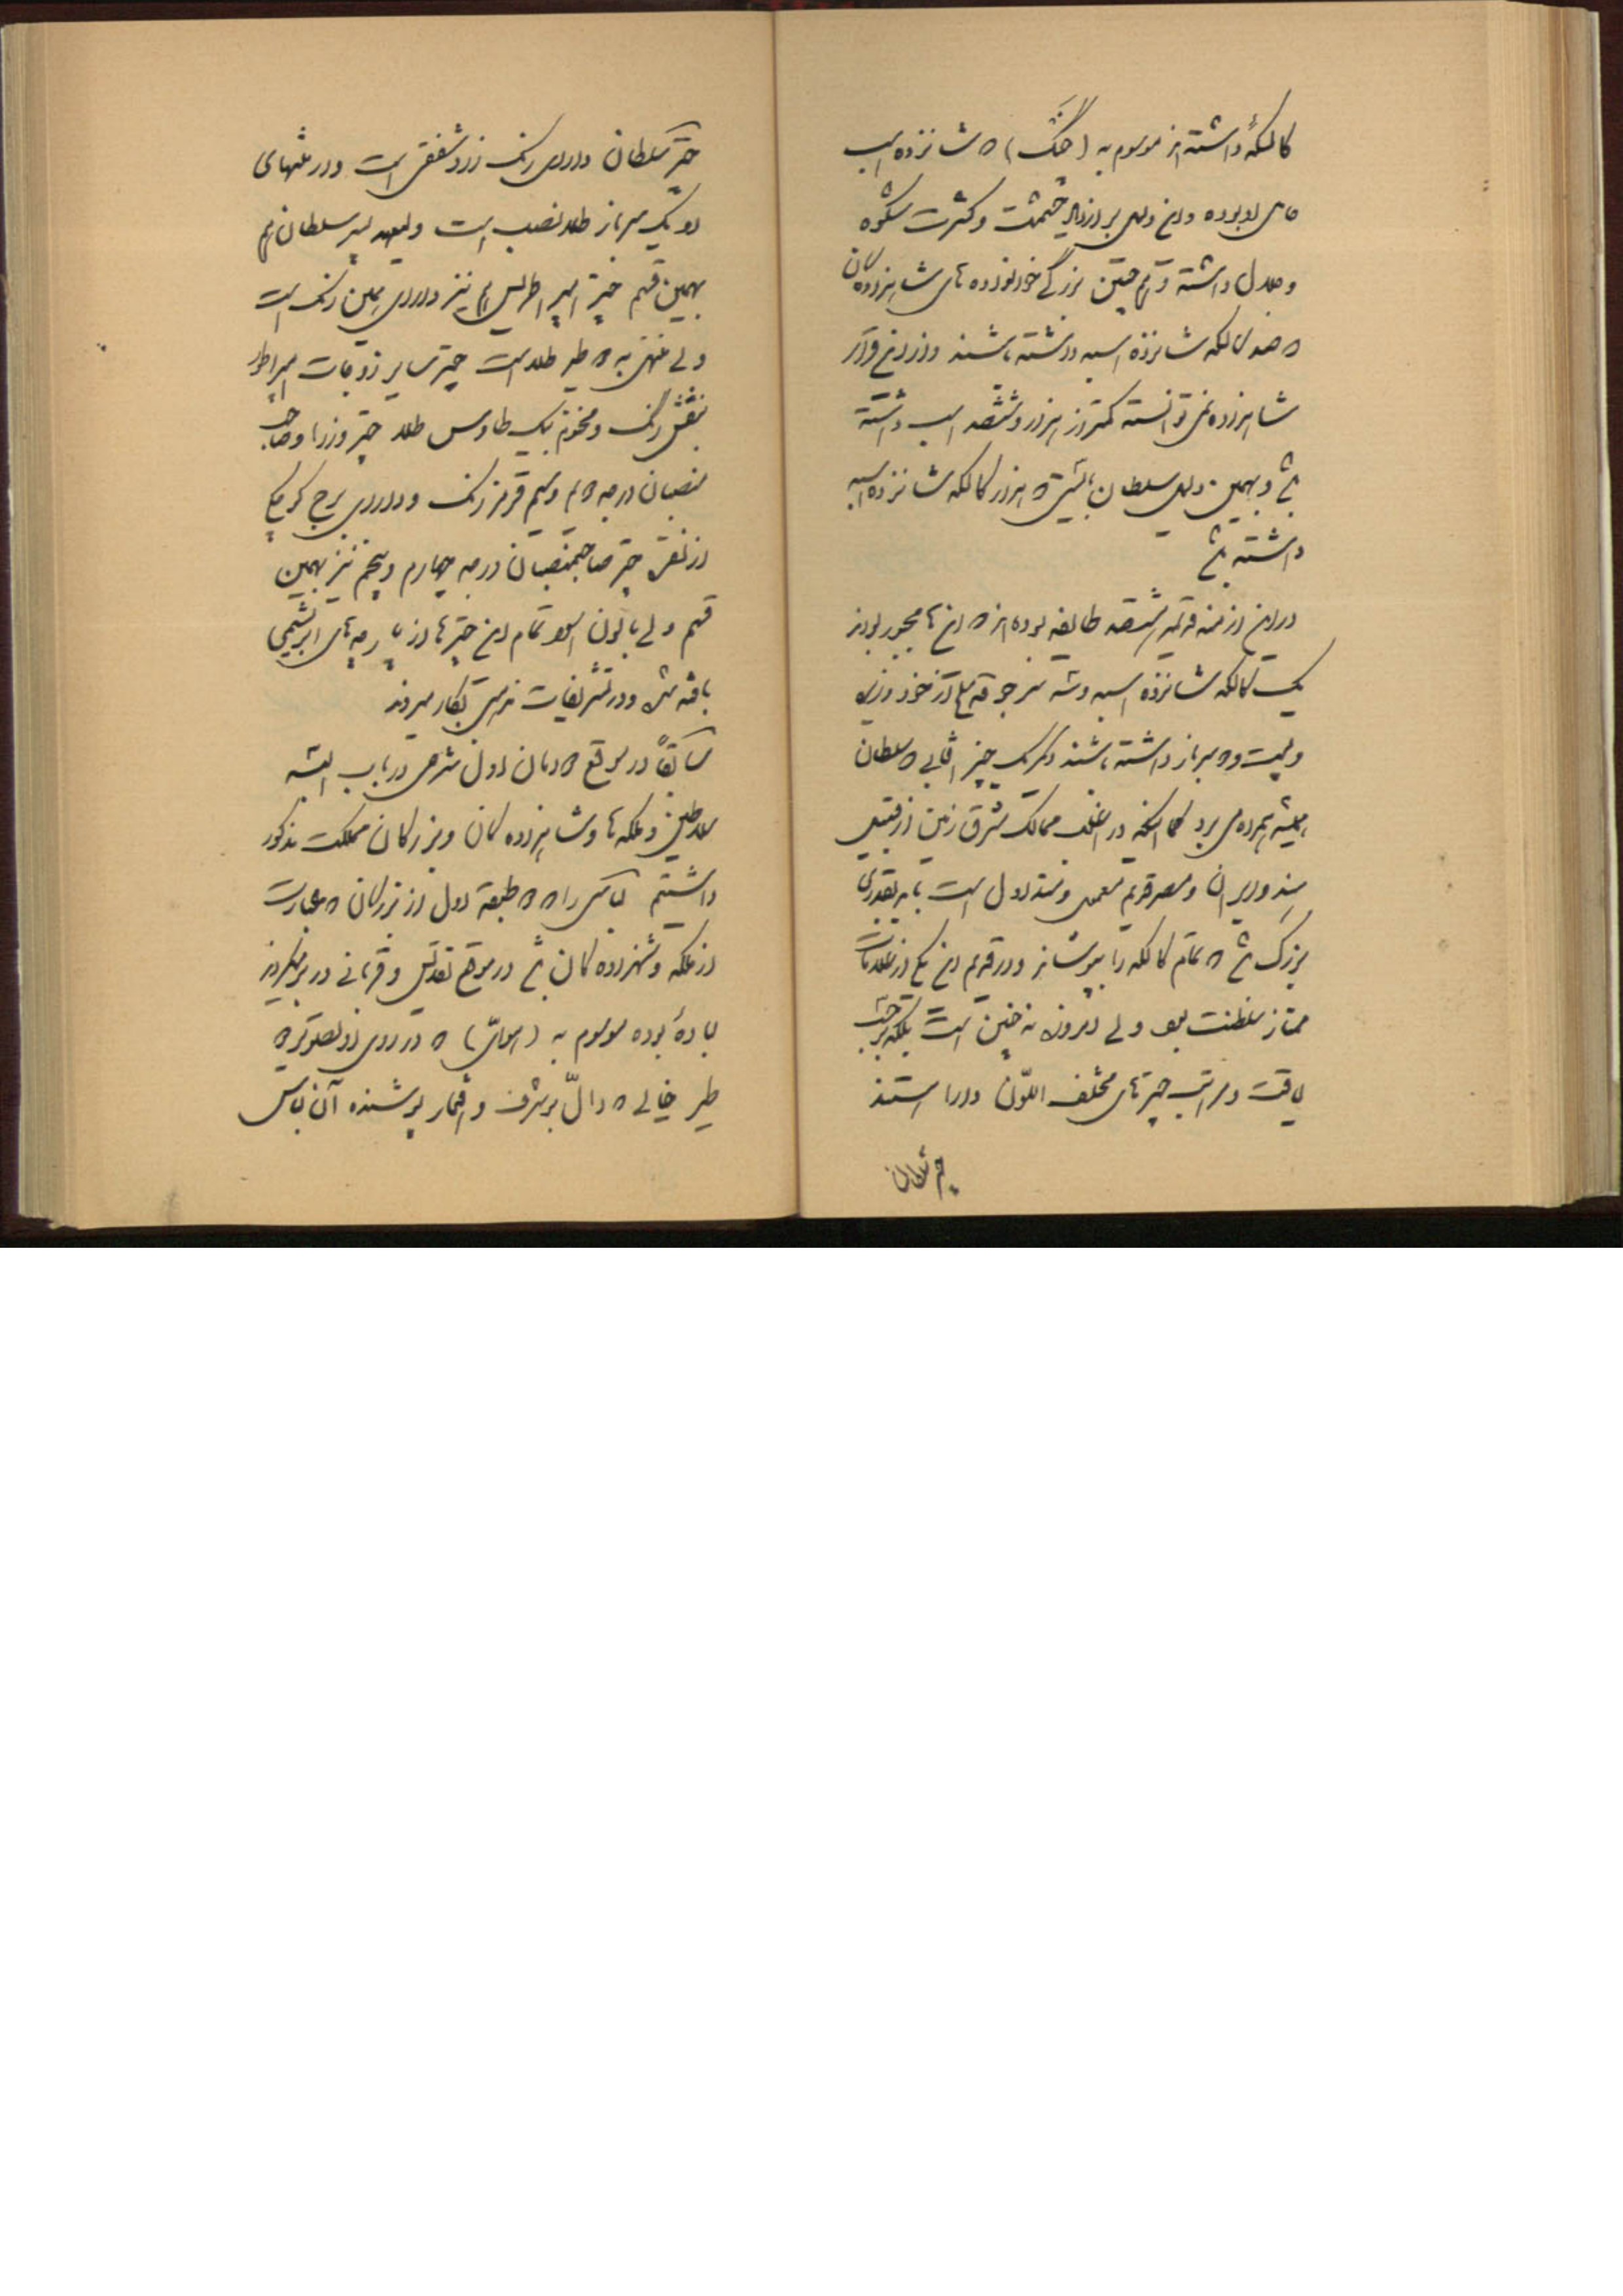 کالسکهٔ داشته‌اند موسوم به (هنگ) که شانزده اسب
حامل او بوده و این دلیل بر ازدیاد حشمت و کثرت شکوه
و جلال داشته و هم چنین بزرگ خانواده های شاهزادگان
که صد کالسکه شانزده اسبه داشته باشند و از این قرار
شاهزاده نمی توانسته کمتر از هزار و ششصد اسب داشته
باشد و بهمین دلیل سلطان بایستی که هزار کالسکه شانزده اسبه
داشته باشد
در این ازمنه قدیم ششصد طایفه بوده اند که این ها مجبور بودند
یک کالسکه شانزده اسبه و سه جوقه مسلح از خود
و بیست و سرباز داشته باشند دیگر یک چیز که سلطان
همیشه همراه می برد در اغلب ممالک شرق زمین از قبیل
هند و ایران و مصر قدیم معمول و متداول است باید بقدری
بزرگ باشد که تمام کالسکه را بپوشاند و در قدیم این یکی از علامات
ممتاز سلطنت بود ولی امروزه نه چنین است بلکه بر حسب
لیاقت و مراتب چترهای مختلف اللون دارا هستند
چتر سلطان
چتر سلطان دارای رنگ زرد شفقی است و در منتهای
او یک سرباز طلا نصب است ولیعهد پسر سلطان هم
بهمین قسم چتر امپراطریس هم نیز دارای همین رنگ است
ولی منتهی به طیر طلا است چتر سایر زوجات امپراطور
بنفش رنگ و مختوم بیک طاوس طلا چتر وزرا و صاحب
منصبان درجه دوم و سیم قرمز رنگ و دارای برج کوچکی
از نقره چتر صاحبمنصبان درجه چهارم و پنجم نیز بهمین
قسم ولی با لون تمام این چترها از پارچه های ابریشمی
بافته شده و در تشریفات بکار میرود
سابقاً در موقع شرحی در باب البسه
سلاطین و ملکه ها و شاهزاده کان و بزرگان مملکت مذکور
داشتیم لباسی را که طبقه اول از بزرگان که عبارت
از ملکه و شهزاده کان باشد در موقع تقدیس و قربانی در بر میکردند
لباده بوده موسوم به که در روی او
طیر خیالی که دالّ بر شرف و افتخار پوشنده آن لباس